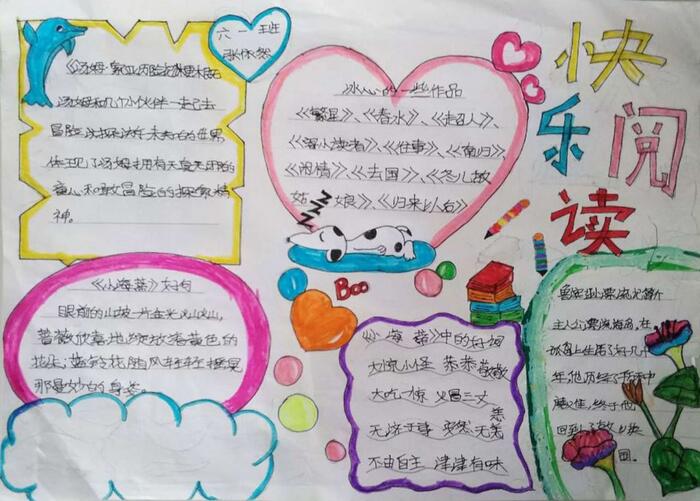 六一班
张依然
《汤姆·索亚历险记》
汤姆和几个小伙伴一起去
冒险
体现了汤姆拥有天真无邪的
童心和敢冒险的探索精
神。
冰心的一些作品
《繁星》、《春水》、《超人》、
《寄小读者》、《往事》、《南归》、
《闲情》、《去国》、《冬儿姑
娘》、《归来以后》
快
乐阅
读
Boo
《小海蒂》好句
眼前的山坡一片金光火山火山,
蔷薇欣喜地绽放着黄色的
花朵,蓝铃花随风轻轻摇晃
那曼妙的身姿。
《小海蒂》中的好词
大惊小怪 恭恭敬敬
大吃一惊 火冒三丈
无济于事 安然无恙
不由自主 津津有味
鲁宾逊漂流记简介
主人公漂流海岛,在
孤岛上生活了好几十
年,他历经了千辛
终于他
回到了故乡英
国。